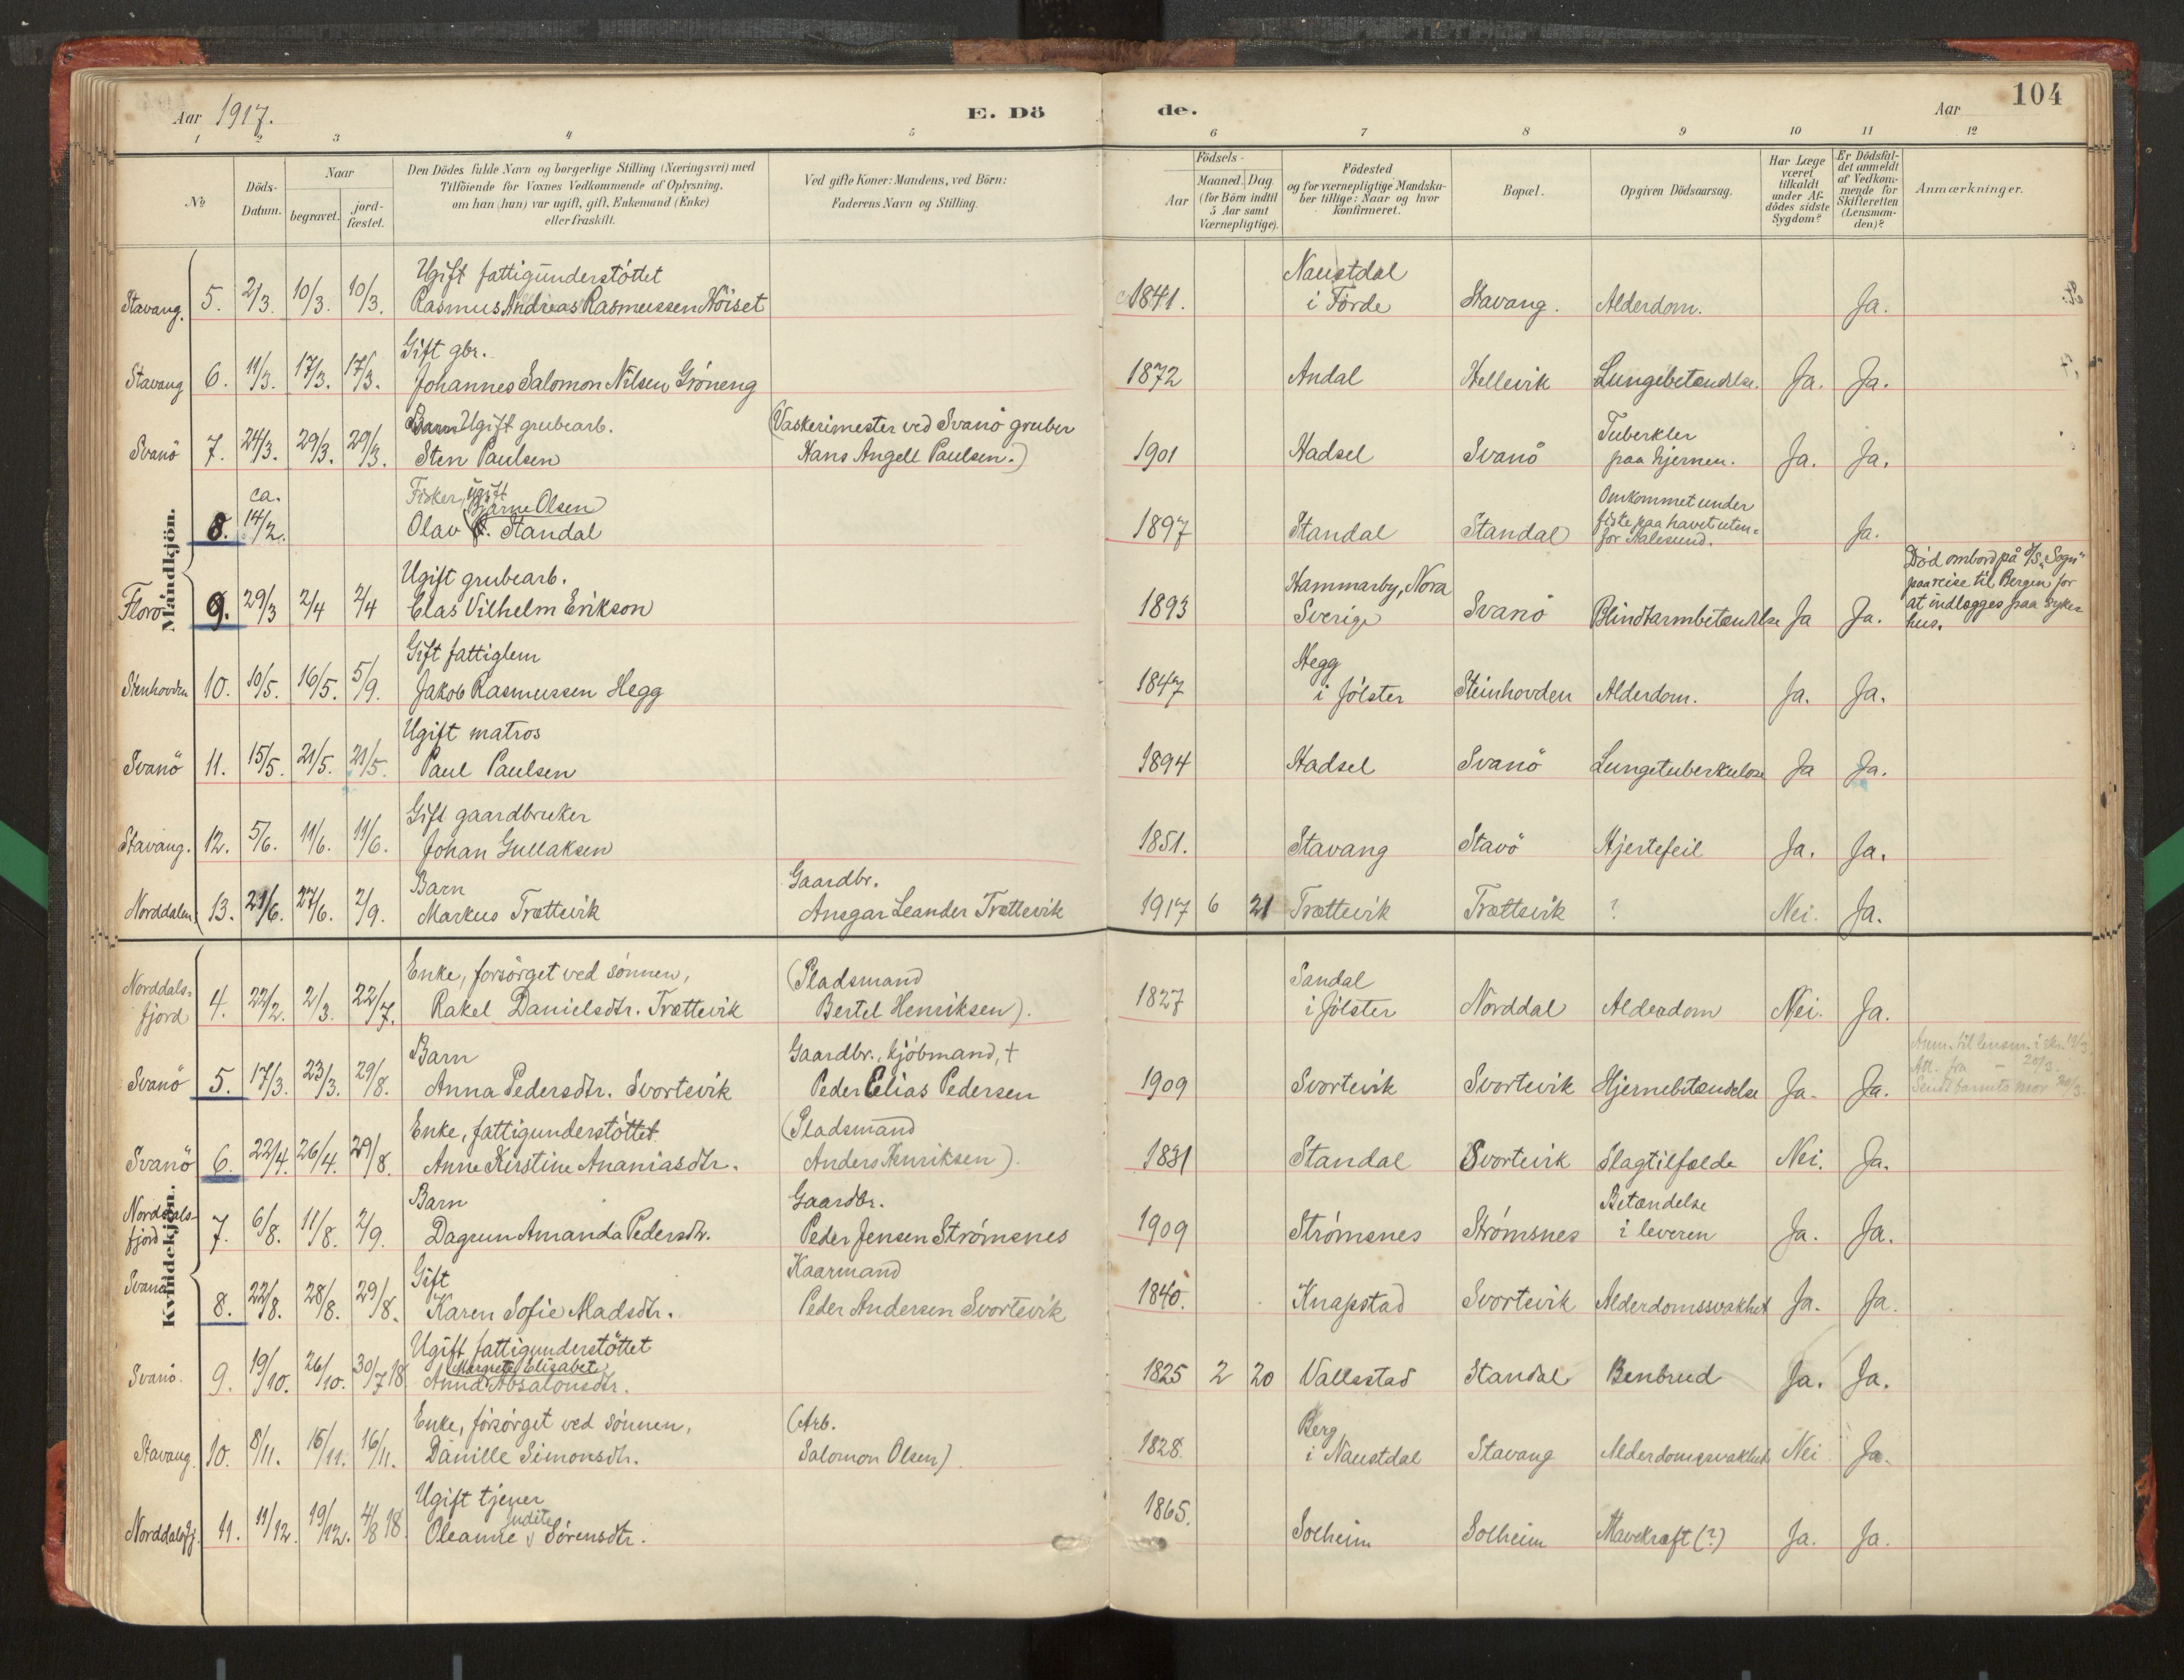 Aar 1917.
E. Dö de.
Aar
104
1 2 3 4 5 6 7 8 9 10 11 12
No
Döds-Datum.
Naar
begravet.
jord-fæstet.
Den Dödes fulde Navn og borgerlige Stilling (Næringsvei) med
Tilföiende for Voxnes Vedkommende af Oplysning,
om han (hun) var ugift, gift, Enkemand (Enke)
eller fraskilt.
Ved gifte Koner: Mandens, ved Börn:
Faderens Navn og Stilling.
Födsels-
Aar
Maaned. Dag
(for Börn indtil
5 Aar samt
Værnepligtige).
Födested
og for værnepligtige Mandska-
ber tillige: Naar og hvor
konfirmeret.
Bopæl.
Opgiven Dödsaarsag.
Har Læge
været
tilkaldt
under Af-
dödes sidste
Sygdom?
Er Dödsfal-
det anmeldt
af Vedkom-
mende for
Skifteretten
(Lensman-
den)?
Anmærkninger.
Mandkjön.
Ugift fattigunderstöttet Naustdal
Stavang. 5. 2/3. 10/3. 10/3. Rasmus Andreas Rasmussen Höiset 1841. i Förde Stavang. Alderdom. Ja.
Gift gbr.
Stavang 6. 11/3. 17/3. 17/3. Johannes Salomon Nilsen Gröneng 1872 Andal Hellevik Lungebetændelse. Ja. Ja.
Barn Ugift grubearb. (Vaskerimester ved Svanö gruber Tuberkler
Svanö 7. 24/3. 29/3. 29/3. Sten Paulsen Hans Angell Paulsen.) 1901 Hadsel Svanö paa hjernen. Ja. Ja.
ca. Fisker, ugift Bjarne Olsen Omkommet under
8. 14/2. Olav Standal 1897 Standal Standal fiske paa havet uten-
for Aalesund. Ja.
Ugift grubearb. Hammarby, Nora Död ombord på D/S. "Sogn"
paa reise til Bergen for
Florö 9. 29/3 2/4 2/4 Clas Vilhelm Erikson 1893 Sverige Svanö Blindtarmbetændelse Ja Ja. at indlægges paa syke-
hus.
Gift fattiglem Hegg
Stenhovden 10. 10/5. 16/5. 5/9. Jakob Rasmussen Hegg 1847 i Jölster Steinhovden Alderdom. Ja. Ja.
Ugift matros
Svanö 11. 15/5. 21/5. 21/5. Paul Paulsen 1894 Hadsel Svanö Lungetuberkulose Ja Ja.
Gift gaardbruker
Stavang. 12. 5/6. 11/6. 11/6. Johan Gullaksen 1851. Stavang Stavö Hjertefeil Ja. Ja.
Barn Gaardbr.
Norddalen 13. 21/6. 27/6. 2/9. Markus Trættevik Ansgar Leander Trættevik 1917 6 21 Trættevik Trættevik ? Nei. Ja.
Kvindekjön.
Norddals- Enke, forsörget ved sönnen, (Pladsmand Sandal
fjord 4. 22/2. 2/3. 22/7. Rakel Danielsdtr. Trættevik Bertel Henriksen). 1827 i Jölster Norddal Alderdom Nei. Ja.
Barn Gaardbr., kjöbmand, †
Svanö 5. 17/3. 23/3. 29/8. Anna Pedersdtr. Svortevik Peder Elias Pedersen 1909 Svortevik Svortevik Hjernebetændelse Ja. Ja.
Att. fra - 20/3.
Sendt barnets mor 20/3.
Enke, fattigunderstöttet (Pladsmand
Svanö 6. 22/4. 26/4. 29/8. Anne Kirstine Ananiasdtr. Anders Henriksen). 1831 Standal Svortevik Slagtilfælde Nei. Ja.
Norddals- Barn Gaardbr. Betændelse
fjord 7. 6/8. 11/8. 2/9. Dagrun Amanda Pedersdtr. Peder Jensen Strömsnes 1909 Strömsnes Strömsnes i leveren Ja. Ja.
Gift Kaarmand
Svanö 8. 22/8. 28/8. 29/8. Karen Sofie Madsdtr. Peder Andersen Svortevik 1840. Knapstad Svortevik Alderdomssvakhet Ja. Ja.
Ugift fattigunderstöttet
Margrete Elisabet
Svanö. 9. 19/10. 26/10. 30/7 18 Anna Absalonsdtr. 1825 2 20 Vallestad Standal Benbrud Ja. Ja.
Enke, forsörget ved sönnen, (Arb. Berg
Stavang. 10. 8/11. 15/11. 16/11. Danille Simonsdtr. Salomon Olsen). 1828. i Naustdal Stavang Alderdomssvakhet Nei Ja.
Ugift tjener
Judite
Norddalsfj. 11. 11/12. 19/12. 4/8 18. Oleanne Sörensdtr. 1865. Solheim Solheim Mavekræft (?) Ja. Ja.